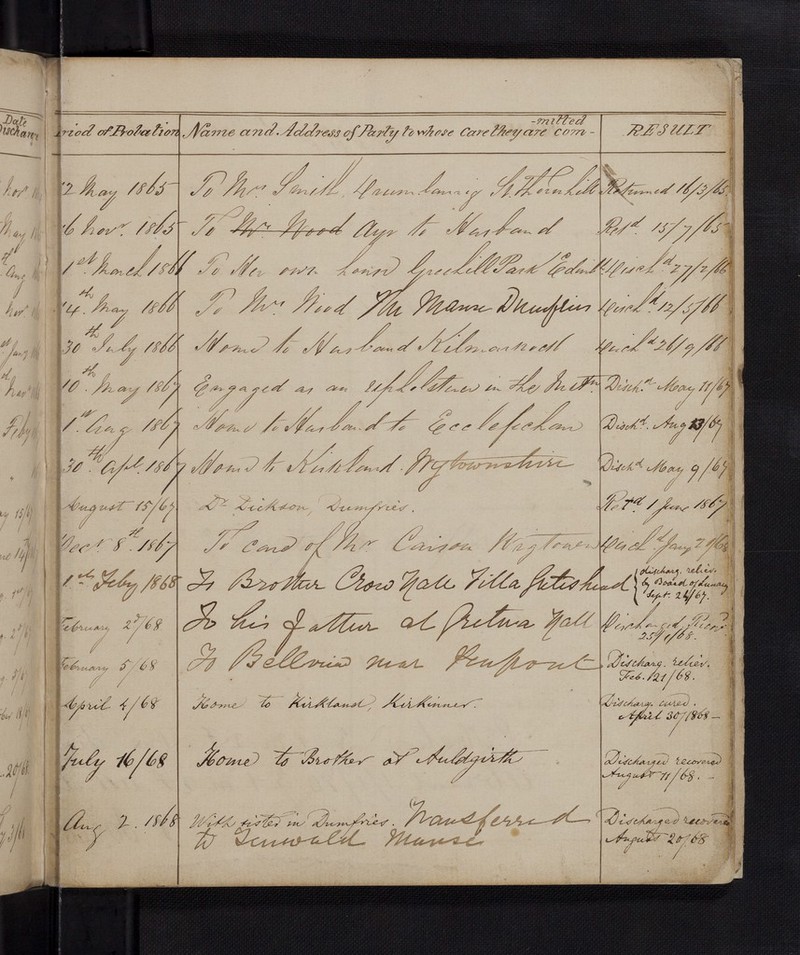 Date
Period of Probation Name and Address of Party to whose Care they are com-mitted RESULT
2 May 1865 To Mrs Smith Drumlanrig St Thornhill Returned 16/3/65
6 Novr. 1865 To Mr Wood Ayr to Husband Retd. 15/7/65
1st March 1866 To Her own house Greehill Park Edinr Disch.d 27/2/66
4th May 1866 To Mrs Wood The Manse Dumfries Disch.d 12/5/66
30th July 1866 Home to Husband Kilmarnock Disch.d 26/9/66
10th May 1867 Engaged as an upholsterer in the Instn. Disch.d May 11/67
1st Aug 1867 Home to Husband to Ecclefechan Disch.d. Aug 13/67
30th Apl. 1867 Home to Kirkland. Wigtownshire Disch.d May 9/67
August 15/67 Dr. Dickson, Dumfries. Retd 1 June 1867
Decr 8th. 1867 To card of Mr Carson Wigtown Disch.d Jany 7/68
1st Feby 1868 To Brother Crow Hall Villa Gateshead discharg. reliev. by Board of Lunacy Sept. 24/67.
February 2d/68 To his father at Gretna Hall Discharged Recovd 25/1/68.
February 5/68 To Bellview near Discharg. reliev. Feb. 121/68.
April 4/68 Home to Kirkland, Kirkinner. Discharge cured. April 30/1868 -
July 16/68 Home to Brother at Auldgirth Discharged recovered August 11/68. -
Aug 2. 1868 With sister in Dumfries. Transferred Discharged recovered
to Tinwald Manse August 20/68